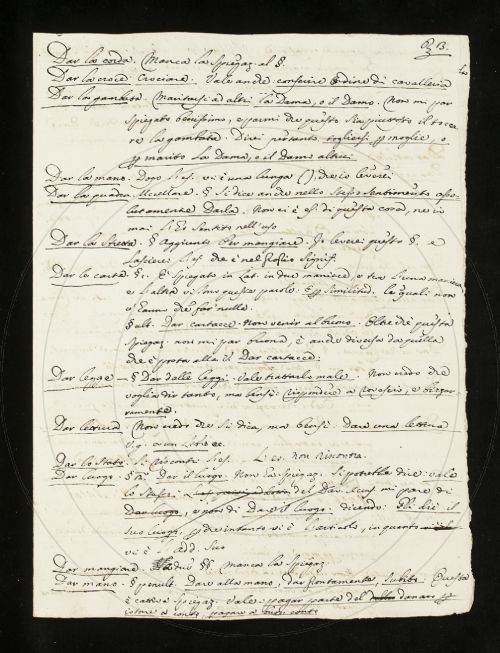 Dar la corda. Manca la Spiegaz. al §.
Dar la croce Crociare. Vale anche: conferire ordine di cavalleria
Dar la gambata. Maritarsi ad altri la Dama, o il Damo. Non mi par
Spiegato benissimo, e parmi che questo sia piuttosto il tocca-
re la gambata. Direi pertanto, togliersi p moglie, o
p marito la Dama, o il Damo altrui
Dar la mano. Dopo vi è una lunga ( ), che io leverei
Dar la quadra. Uccellare. § Si dice anche nello stesso sentimento asso-
lutamente Darla. Non vi è es. di questa cosa, ne io
mai l'ho sentita nell'uso
Dar la stretta. § Aggiunto Per mangiare. Io leverei questo §. e
lascierei che è nel signif.
Dar le carte. § È Spiegato in Lat. in due maniere, e tra l'una maniera
e l'altra vi sono queste parole: E p similitud. le quali non
v'hanno che far nulla.
§ ult. Dar cartacce. Non venir al buono. Oltre che questa
Spiegaz. non mi par buona, è anche diversa da quella
che è posta alla Dar cartacce.
Dar legge — § Dar dalle leggi. Vale trattarlo male. Non credo che
voglia dir tanto, ma bensì: rispondere a rovescio, e bizzar-
ramente.
Dar lettura. Non credo che si dica, ma bensì: Dare una lettura
a un libro ec.
Dar lo Stato. Si riscontri l'es. L'es. non riscontra.
Dar luogo. § Dar il luogo. Non la Spiegaz. Si potrebbe dire: vale
lo stesso. del Dar mi pare di
Dar luogo, e non di Dar il luogo. dicendo: Gli diè il
suo luogo, p che intanto vi è l'articolo, in quanto
vi è l'add. suo
Dar mangiare. Manca la Spiegaz.
Dar mano. § penult. Dare alla mano, dar prontamente, subito. Questa
è cattiva Spiegaz. Vale: pagar parte del danaro p
a conto, pagare a buon conto